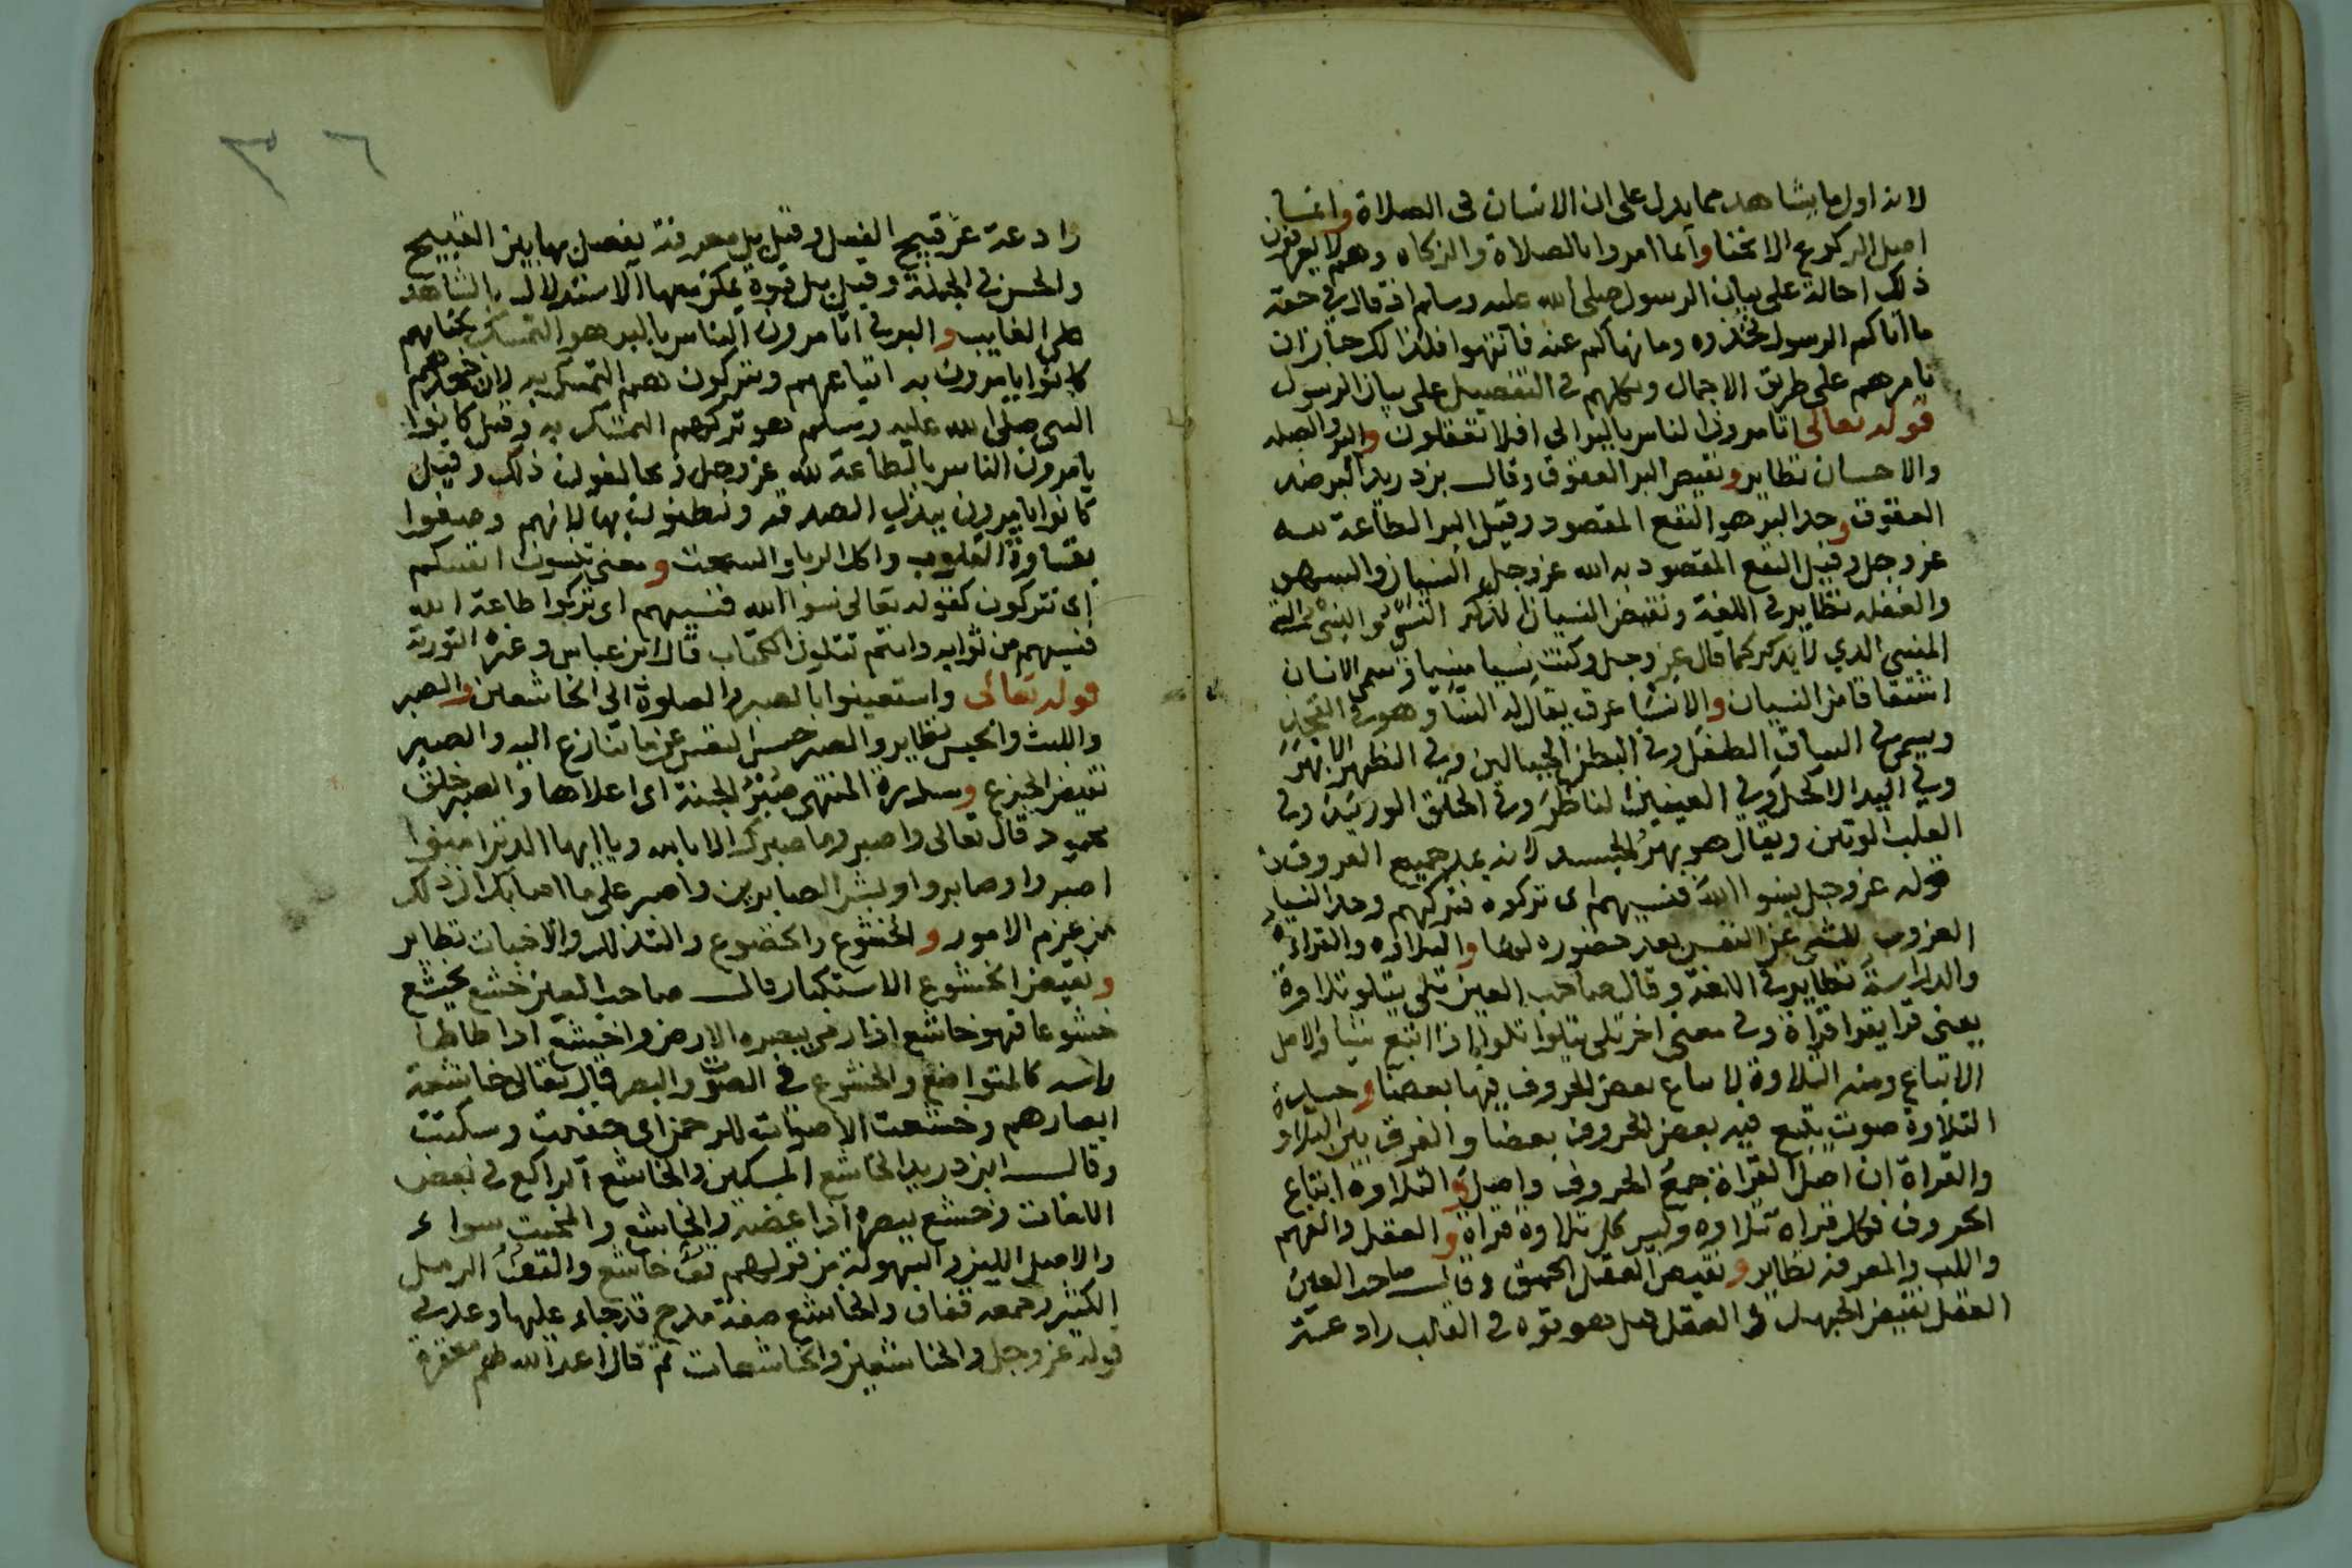 لانه اول ما يشاهد مما يدل على ان الانسان فى الصلاة وانما
اصل الركوع الانحنا وانما امروا بالصلاة والزكاه وهم لا يعرفون
ذلك احالة على بيان الرسول صلى الله عليه وسلم اذ قال فى حقه
ما اتاكم الرسول فخذوه وما نهاكم عنه فانتهوا فلذلك جاز ان
يامرهم على طريق الاجمال ويكلهم فى التفصيل على بيان الرسول
قوله تعالى اتامرون الناس بالبر الى افلا تعقلون والبر والصله
والاحسان نظاير ونقيض البر العقوق وقال بن دريد البر ضد
العقوق وحد البر هو النفع المقصود وقيل البر الطاعة لله
عز وجل وقيل النفع المقصود به الله عز وجل النسيان والسهو
والغفله نظاير فى اللغة ونقيض النسيان الذكر النسى هو الشى
المنسى الذي لا يذكر كما قال عز وجل وكنت نسيا منسيا وسمى الانسان
اشتقاقا من النسيان والانسا عرق يقال له النسا وهو فى الفخذ
ويسمى فى الساق الطفل وفى البطن الحبالين وفى الظهر الابهر
وفي اليد الاكحل وفي العينين الناظر وفى الحلق الوريد وفى
القلب الوتين ويقال هو نهر الجسد لانه يمد جميع العروق
قوله عز وجل نسوا الله فنسيهم اى تركوه فتركهم وحد النسيان
العزوب للشى عن النفس بعد حضوره لها والتلاوه والقراءة
والدراسة نظاير فى اللغة وقال صاحب العين تلى يتلو تلاوة
يعنى قرا يقرا قراة وفى معنى اخر تلى يتلوا تلوا اذا اتبع شيا والاصل
الاتباع ومنه التلاوة لاتباع بعض الحروف فيها بعضا وحد
التلاوة صوت يتبع فيه بعض الحروف بعضا والفرق بين التلاوة
والقراة ان اصل القراة جمع الحروف واصل التلاوه اتباع
الحروف فكل قراة تلاوه وليس كل تلاوة قراة والعقل والفهم
واللب والمعرفة نظاير ونقيض العقل الحمق وقال صاحب العين
العقل نقيض الجهل فى العقل قيل هو قوه فى القلب رادعة
رادعة عن قبيح الفعل وقيل بل معرفة يفصل بها بين القبيح
والحسن فى الجملة وقيل بل قوة يمكن معها الاستدلال بالشاهد
على الغايب والبر فى اتامرون الناس بالبر هو التمسك بكتابهم
كانوا يامرون به اتباعهم ويتركون هم التمسك به لان جحدهم
النبى صلى الله عليه وسلم هو تركهم التمسك به وقيل كانوا
يامرون الناس بالطاعة لله عز وجل ويخالفون ذلك وقيل
كانوا يامرون ببذل الصدقه ويضنون بها لانهم وصفوا
بقساوة القلوب واكل الربا والسحت ومعنى تنسون انفسكم
اى تتركون كقوله تعالى نسوا الله فنسيهم اى تركوا طاعة الله
فنسيهم من ثوابه وانتم تتلون الكتاب قال ابن عباس وغيره التورية
قوله تعالى واستعينوا بالصبر والصلوة الى الخاشعين والصبر
واللبث والحبس نظاير والصبر حبس النفس عن ما تنازع اليه والصبر
نقيض الجزع وسدرة المنتهى صبر الجنة اى اعلاها والصبر خلق
محمود قال تعالى واصبر وما صبرك الا بالله ويا ايها الذين امنوا
اصبروا وصابروا وبشر الصابرين واصبر على ما اصابك ان ذلك
من عزم الامور والخشوع والخضوع والتذلل والاخبات نظاير
ونقيض الخشوع الاستكبار قال صاحب العين خشع يخشع
خشوعا فهو خاشع اذا رمى ببصره الارض واختشع اذا طاطا
راسه كالمتواضع والخشوع فى الصوت والبصر قال تعالى خاشعة
ابصارهم وخشعت الاصوات للرحمن اى خفيت وسكنت
وقال ابن دريد الخاشع المسكين والخاشع الراكع فى بعض
اللغات وخشع ببصره اذا غضه والخاشع والمخبت سواء
والاصل اللين والسهولة من قولهم نقا خاشع والنقا الرمل
الكثير وجمعه والخاشع صفة مدح قد جاء عليها وعد فى
قوله عز وجل والخاشعين والخاشعات ثم قال اعد الله لهم مغفرة
٣٦